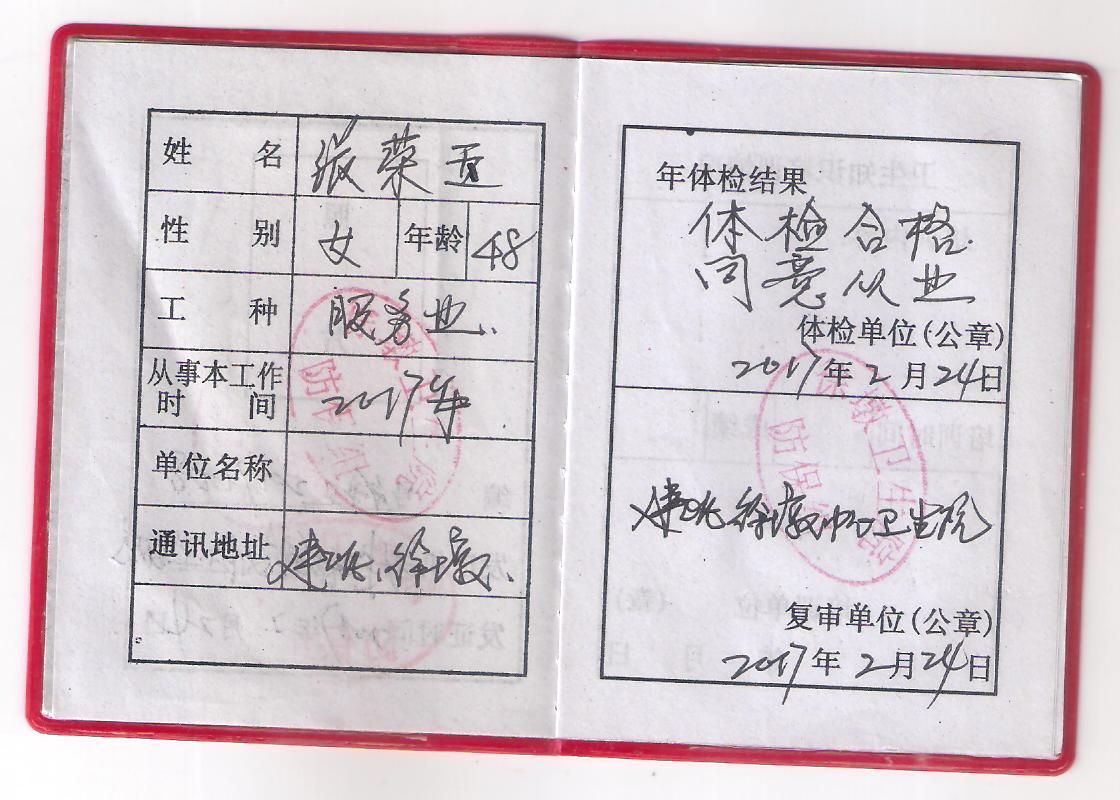 姓 名 张荣玉
性 别 女 年龄 48
工 种 服务业.
从事本工作
时 间 2017年
单位名称
通讯地址 建瓯.徐墩.
年体检结果
体检合格.
同意从业.
体检单位(公章)
2017年2月24日
建瓯徐墩中心卫生院
复审单位(公章)
2017年2月24日
徐墩卫生院
防保